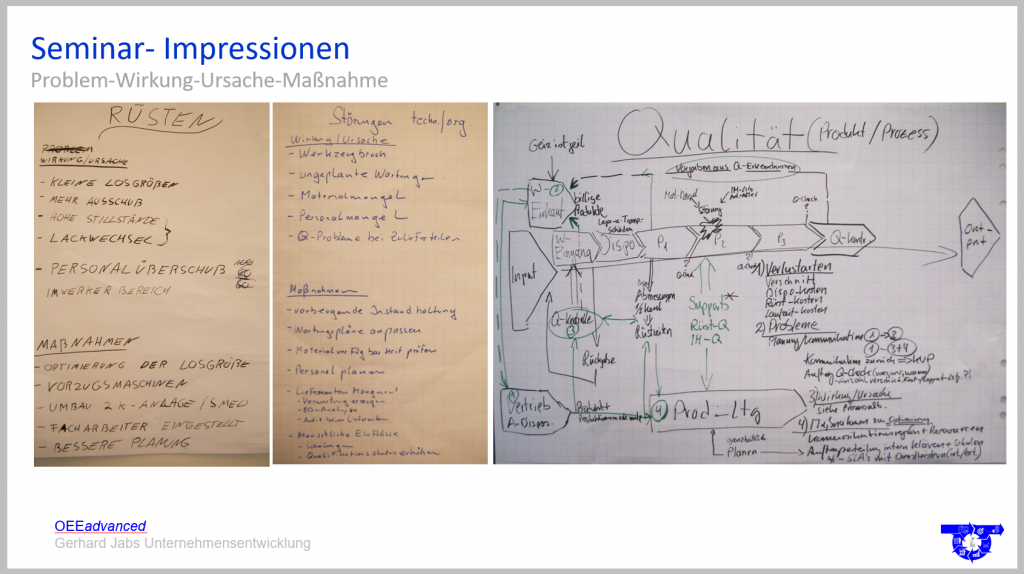 Seminar- Impressionen
Problem-Wirkung-Ursache-Maßnahme
RÜSTEN
PROBLEM
WIRKUNG/URSACHE
- KLEINE LOSGRÖßEN
- MEHR AUSSCHUß
- HOHE STILLSTÄNDE
- LACKWECHSEL
- PERSONALÜBERSCHUß
IM WERKER BEREICH
MAßNAHMEN
- OPTIMIERUNG DER LOSGRÖßE
- VORZUGSMASCHINEN
- UMBAU 2K-ANLAGE / SMED
- FACHARBEITER EINGESTELLT
- BESSERE PLANUNG
Störungen techn./org.
Wirkung/Ursache
- Werkzeugbruch
- ungeplante Wartung
- Materialmangel
- Personalmangel
- Q-Probleme bei Zulieferteilen
Maßnahmen
- vorbeugende Instandhaltung
- Wartungspläne anpassen
- Materialverfügbarkeit prüfen
- Personal planen
- Lieferanten
- Menschliche Einflüsse
- Schulung
- Qualifikationsstatus erhöhen
Qualität (Produkt/Prozess)
Geiz ist geil
Vorgaben aus Q-Erkenntnissen
W-Einkauf
2
billige
Produkte
Störung
Q-Check
Input
W-Eingang
Dispo
P1
P2
P3
Q-Kontr
Output
Q-Kontrolle
3
Rüstzeiten
Rückgabe
Supports
Rüst-Q
IH-Q
1) Verlustarten
Verschnitt
Dispo-Kosten
Rüst-Kosten
Laufzeit-Kosten
2) Probleme
Planung/Kommunikation 1 → 2
1 - 3+4
Kommunikation zurück => KVP
1
Vertrieb
A-Dispos.
Produkt
4
Prod-Ltg
ganzheitlich
Planen
3) Wirkung/Ursache
siehe Prozessabl.
Kommunikationsregeln + Ressourcen
OEEadvanced
Gerhard Jabs Unternehmensentwicklung